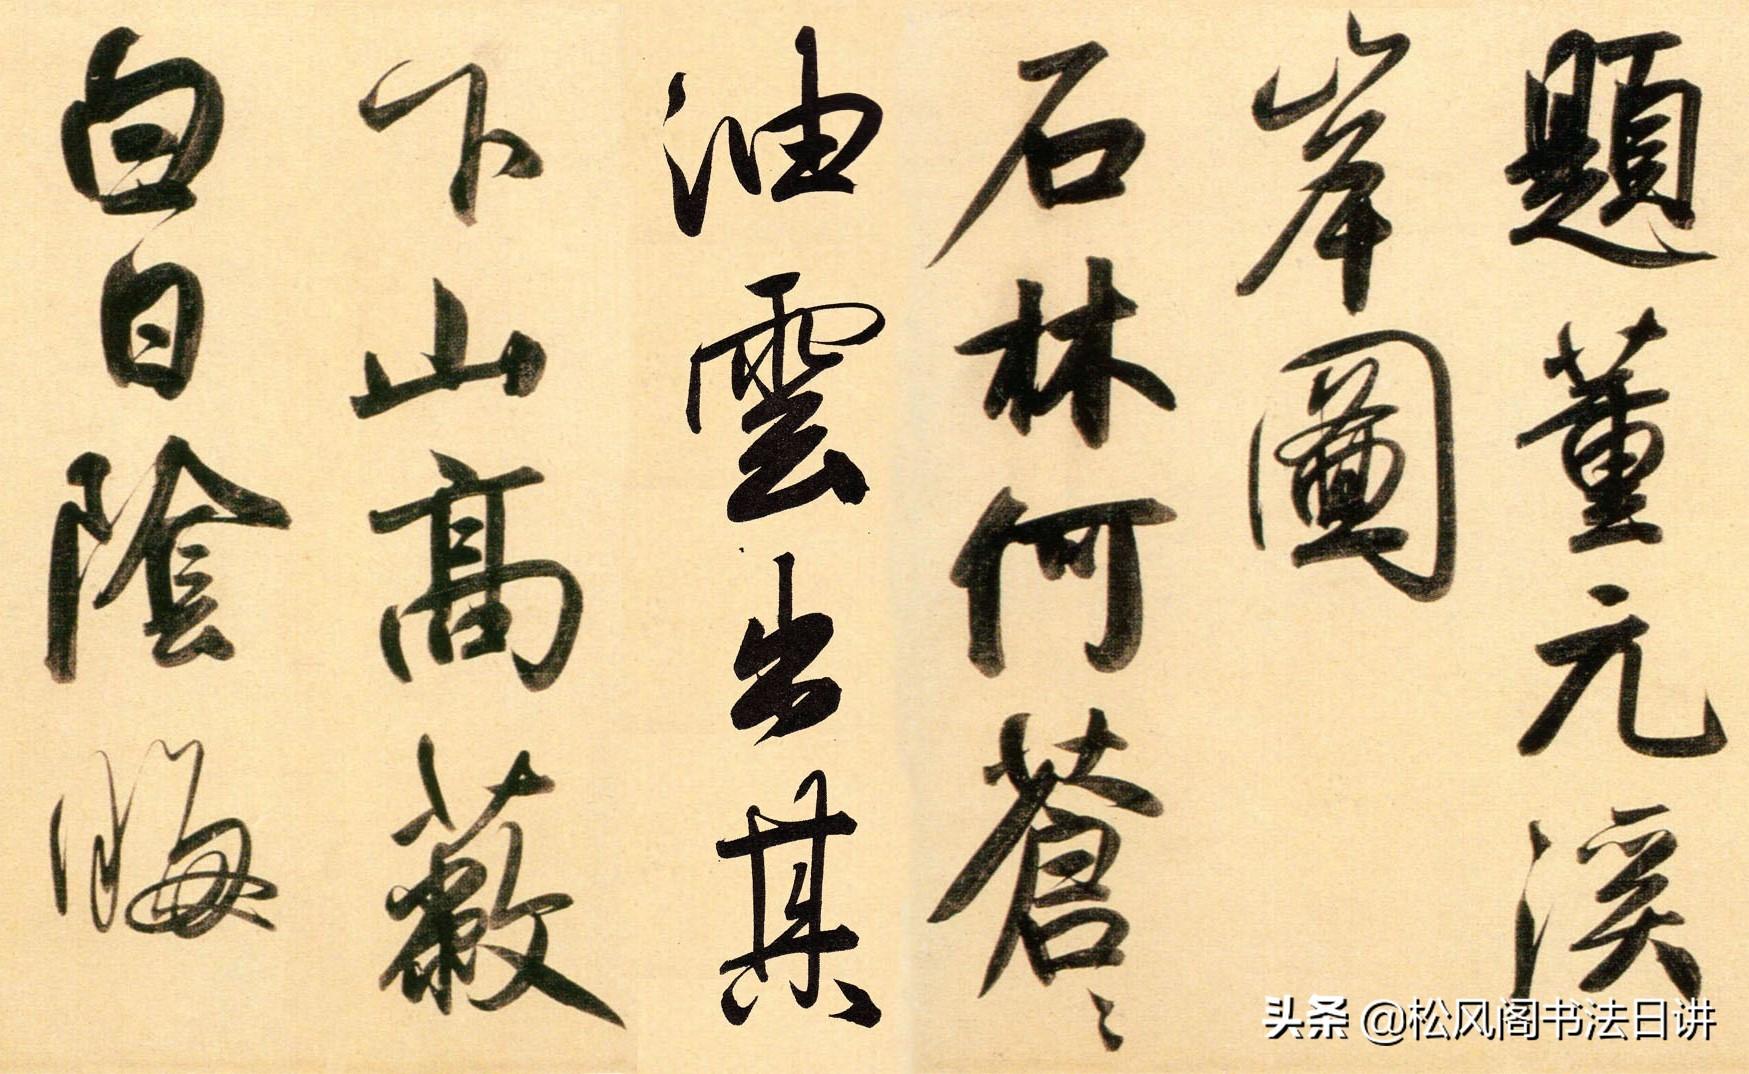 題董元溪
岸圖
石林何蒼〻
油雲出其
下山高蔽
白日陰晦
头条 @松风阁书法日讲